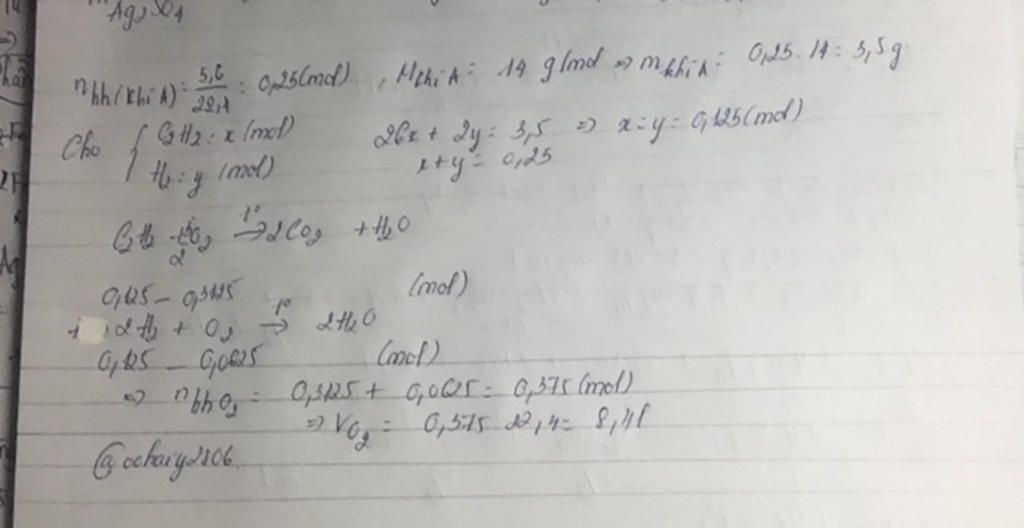 Ag₂SO₄
n hh(khí A) = 5,6/22,4 = 0,25(mol) , M khí A = 14 g/mol => m khí A = 0,25. 14 = 3,5g
Cho { C₂H₂ : x (mol) 26x + 2y = 3,5 => x=y = 0,125(mol)
H₂ : y (mol) x+y = 0,25
C₂H₂ + 5/2 O₂ t°→ 2CO₂ + H₂O
0,125 – 0,3125 (mol)
+ 2H₂ + O₂ t°→ 2H₂O
0,125 – 0,0625 (mol)
=> n hh O₂ = 0,3125 + 0,0625 = 0,375 (mol)
=> V O₂ = 0,375 22,4 = 8,4l
@ochary2806